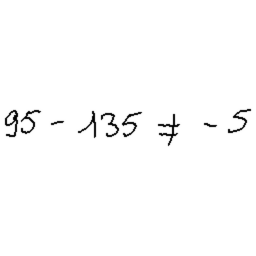 95 - 135 ≠ - 5